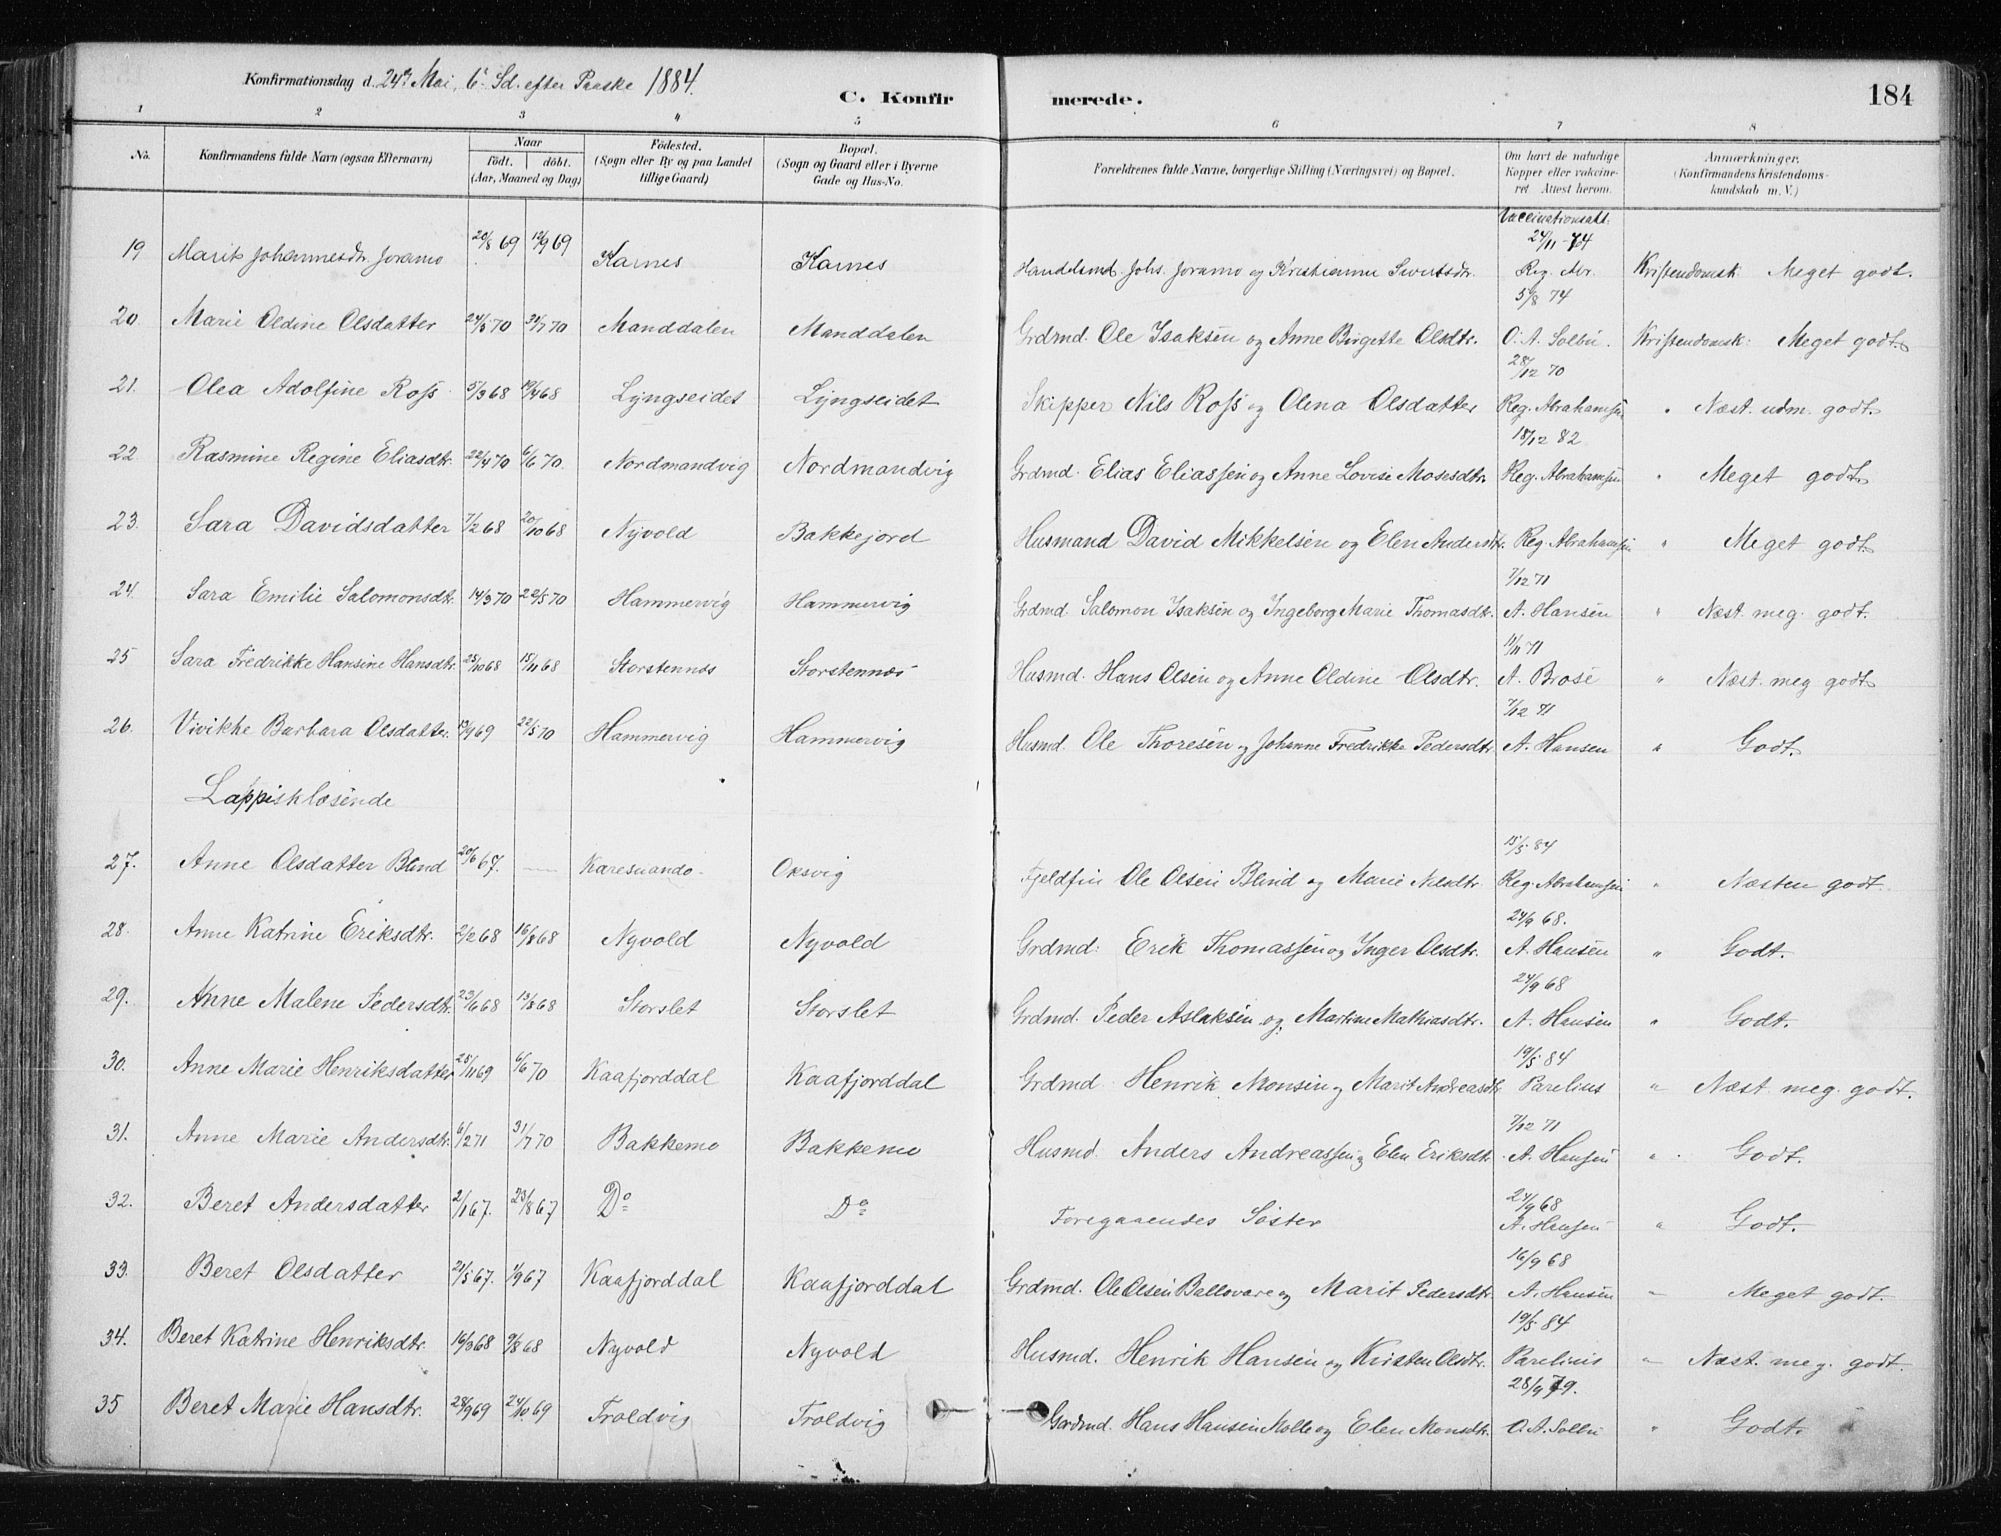 Konfirmationsdag d. 24de Mai, 6te Sd. efter Paaske 1884.
C. Konfirmerede.
184
1 2 3 4 5 6 7 8
No. Konfirmandens fulde Navn (ogsaa Efternavn) Naar födt. döbt. (Aar, Maaned og Dag) Födested. (Sogn eller By og paa Landet tillige Gaard) Bopæl. (Sogn og Gaard eller i Byerne Gade og Hus-No. Forældrenes fulde Navne, borgerlige Stilling (Næringsvei) og Bopæl. Om havt de naturlige Kopper eller vakcineret Attest herom. Anmærkninger. (Konfirmandens Kristendomskundskab m. V.)
19 Marit Johannesdtr. Joramo 20/8 69 12/9 69 Karnes Karnes Handelsmd. Johs. Joramo og Kristianne Vaccinationsatt. 24/11 74 Reg. Abr. Kristendomsk. Meget godt.
20. Marie Oldine Olsdatter 24/5 70 31/7 70 Manddalen Manddalen Grdmd. Ole Isaksen og Anne Birgette Olsdtr. 5/8 74 O. A. Solbu. Kristendomsk. Meget godt.
21. Olea Adolfine Ross 5/3 68 19/4 68 Lyngseidet Lyngseidet Skipper Nils Ross og Olena Olsdatter 28/12 70 Reg. Abrahamsen " Næst. udm. godt.
22. Rasmine Regine Eliasdtr. 22/4 70 6/6 70. Nordmandvig Nordmandvig Grdmd. Elias Eliassen og Anne Lovise Mosesdtr. 18/12 82 Reg. Abrahamsen " Meget godt.
23. Sara Davidsdatter 7/2 68 20/10 68 Nyvold Bakkejord Husmand David Mikkelsen og Elen Andersdtr. Reg. Abrahamsen " Meget godt.
24. Sara Emilie Salomonsdtr. 14/3 70 22/5 70 Hammervig Hammervig Grdmd. Salomon Isaksen og Ingeborg Marie Thomasdtr. 7/12 71 A. Hansen " Næst meg. godt.
25 Sara Fredrikke Hansine Hansdtr. 25/10 68 15/11 68 Storstennæs Storstennæs Husmd. Hans Olsen og Anne Oldine Olsdtr. 11/11 71 A. Brose " Næst. meg godt.
26. Vivikke Barbara Olsdatter. 13/9 69 22/5 70 Hammervig Hammervig Husmd. Ole Thoresen og Johanne Fredrikke Pedersdtr. 7/12 71 A. Hansen " Godt.
Lappisklæsende
27. Anne Olsdatter Blind 20/6 67. — Karesuando. Oksvig Fjeldfin Ole Olsen Blind og Marie Nilsdtr. 15/5 84 Reg. Abrahamsen " Næsten godt.
28. Anne Katrine Eriksdtr. 2/2 68 16/8 68 Nyvold Nyvold Grdmd. Erik Thomassen og Inger Olsdtr. 24/9 68. A. Hansen " Godt.
29. Anne Malene Pedersdtr. 23/6 68 13/8 68 Storslet Storslet Grdmd. Peder Aslaksen og Martine Mathiasdtr. 24/9 68 A. Hansen " Godt.
30. Anne Marie Henriksdatter 25/11 69 6/6 70 Kaafjorddal Kaafjorddal Grdmd Henrik Monsen og Marit Andreasdtr. 19/5 84 Parelius " Næst meg. godt.
31. Anne Marie Andersdtr. 6/2 71 31/7 70 Bakkemo Bakkemo Husmd. Anders Andreassen og Elen Eriksdtr. 7/12 71 A. Hansen " Godt.
32. Beret Andersdatter 2/1 67. 23/8 67 Do Do Foregaaendes Söster 24/9 68 A. Hansen " Godt.
33. Beret Olsdatter 21/5 67. 1/9 67 Kaafjorddal Kaafjorddal Grdmd. Ole Olsen Ballovare og Marit Pedersdtr. 16/9 68 A. Hansen " Meget godt.
34. Beret Katrine Henriksdtr. 16/3 68 9/8 68 Nyvold Nyvold Husmd. Henrik Hansen og Kirsten Olsdtr. 19/5 84 Parelius " Næst. meg. godt.
35 Beret Marie Hansdtr. 28/9 69 24/10 69 Troldvig Troldvig Grdmd. Hans Hansen Molle og Elen Monsdtr. 28/9 79. O. A. Solbu " Godt.